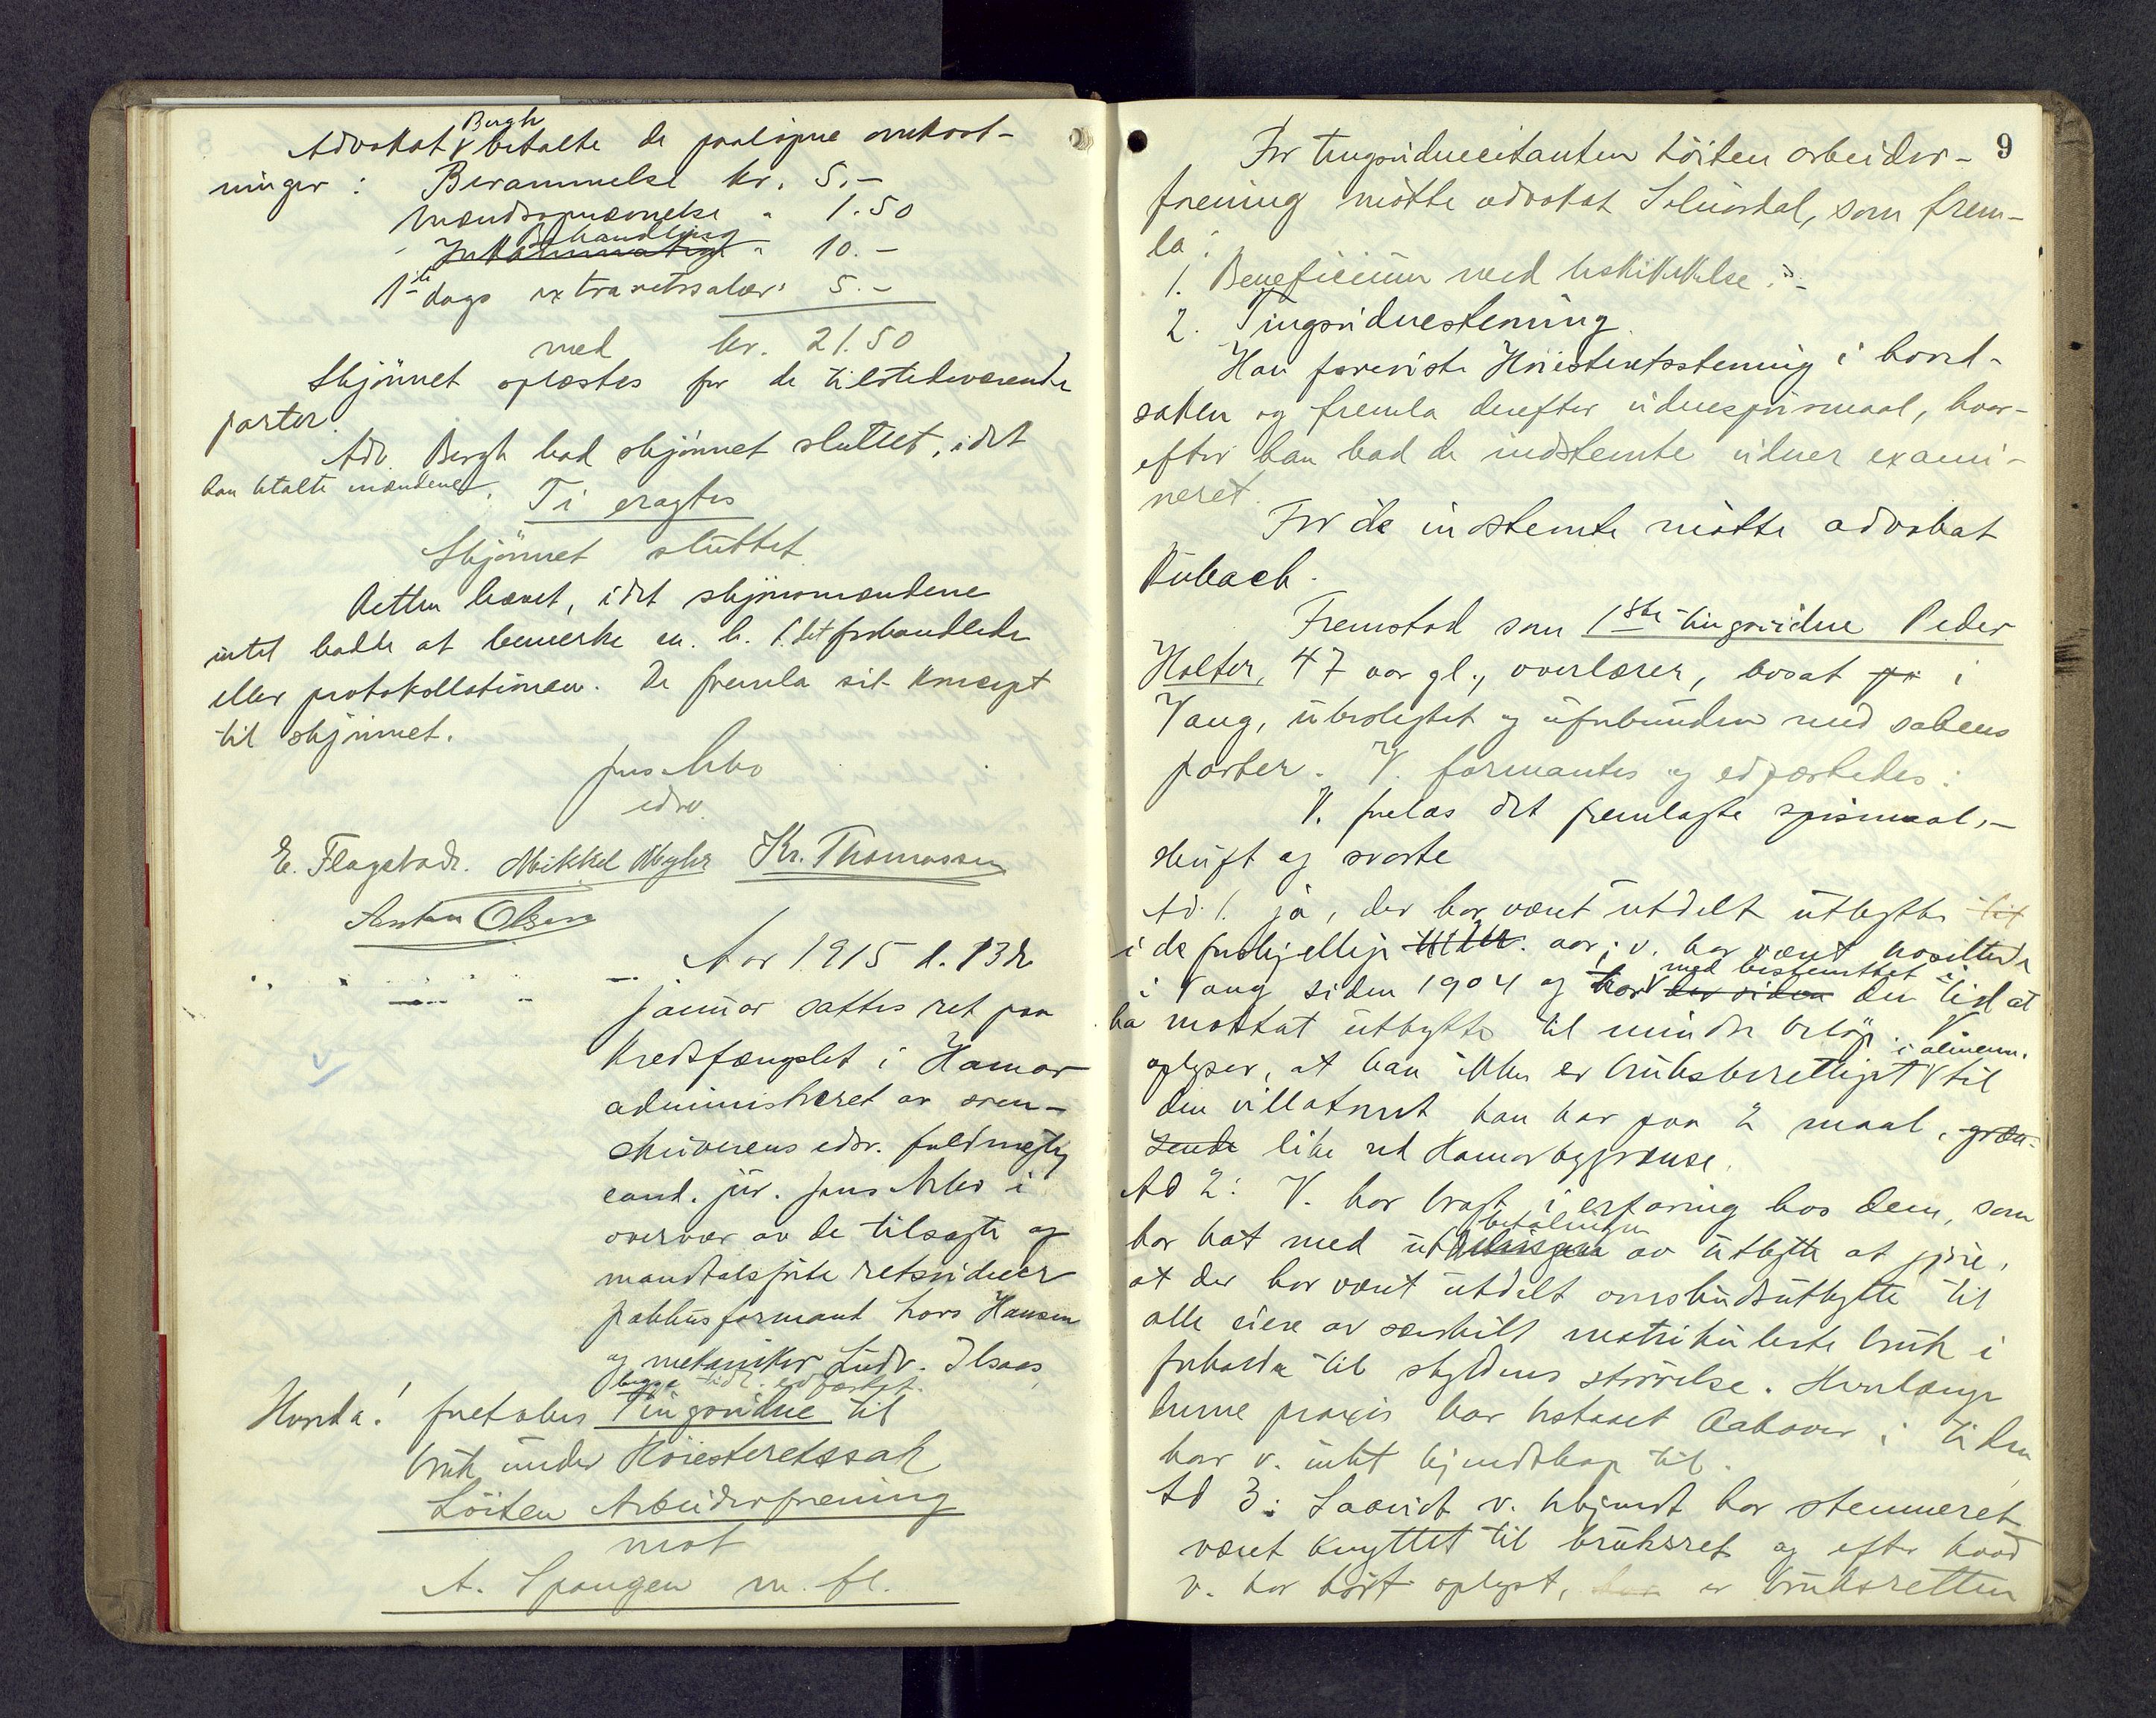 Advokat Bergh betalte de paaløpne omkost-
ninger: Berammelse kr. 5.-
Mændsopnævnelse " 1.50
Behandling " 10.-
1ste dags extraretssalær " 5.-
med kr. 21.50
Skjønnet oplæstes for de tilstedeværende
parter.
Adv. Bergh bad skjønnet sluttet, idet
han betalte mændene.
Ti eragtes
Skjønnet sluttet.
Retten hævet, idet skjønsmændene
intet hadde at bemerke m. h. t. det forhandlede
eller protokollationen. De fremla sit koncept
til skjønnet.
Jens Arbo
edsv.
E. Flagstad. Mikkel Myhr Kr. Thomassen
Anton Olsen
Aar 1915 d. 13de
januar sattes ret paa
Kredsfængslet i Hamar
administreret av soren-
skriverens edsv. fuldmægtig
cand. jur. Jens Arbo i
overvær av de tilsagte og
mandtalsførte retsvidner
pakhusformand Lars Hansen
og mekaniker Ludv. Ilsaas,
begge tidl. edfæstet.
Hvorda! foretokes Tingsvidne til
bruk under Høiesteretssak
Löiten Arbeiderforening
mot
A. Spangen m. fl.
9
For tingsvidnecitanten Löiten arbeider-
forening møtte advokat Solnørdal, som frem-
la:
1. Beneficium med beskikkelse.
2. Tingsvidnestevning.
Han foreviste Høiesteretsstevning i hoved-
saken og fremla derefter vidnespørsmaal, hvor-
efter han bad de indstevnte vidner exami-
neret.
For de instevnte møtte advokat
Rubach.
Fremstod som 1ste tingsvidne Peder
Holter, 47 aar gl., overlærer, bosat på i
Vang, ubeslegtet og uforbunden med sakens
parter. V. formantes og edfæstedes:
V. forelæs det fremlagte spørsmaals-
skrift og svarte
Ad. 1. ja, der har været utdelt utbytte til
i de forskjellige aar; v. har været bosittende
i Vang siden 1904 og har med bestemthet der siden den tid at
ha mottat utbytte til mindre beløp. V.
oplyser, at han ikke er bruksberettiget i almenn. til
den villatomt han har paa 2 maal, græn-
sende like ved Hamar bygrænse.
Ad 2: V. har bragt i erfaring hos dem, som
har hat med utbetalingen av utbytte at gjøre,
at der har været utdelt ombudsutbytte til
alle eiere av særskilt matrikulerte bruk i
forhold til skyldens størrelse. Hvorlænge
denne praxis har bestaaet bakover i tiden
har v. intet kjendskap til.
Ad 3: Saavidt v. bekjendt har stemmeret
været knyttet til bruksret og efter hvad
v. har hørt oplyst, er bruksretten